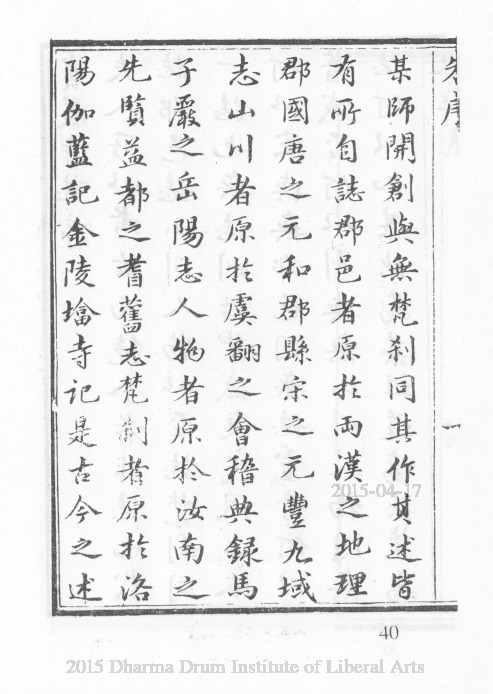 某師開創與無梵刹同其作其述皆
有所自誌郡邑者原於兩漢之地理
郡國唐之元和郡縣宋之元豐九域
志山川者原於虞翻之會稽典録馬
子嚴之岳陽志人物者原於汝南之
先賢益都之耆舊志梵刹者原於洛
陽伽藍記金陵塔寺記是古今之述
一
2015-04-17
40
2015 Dharma Drum Institute of Liberal Arts